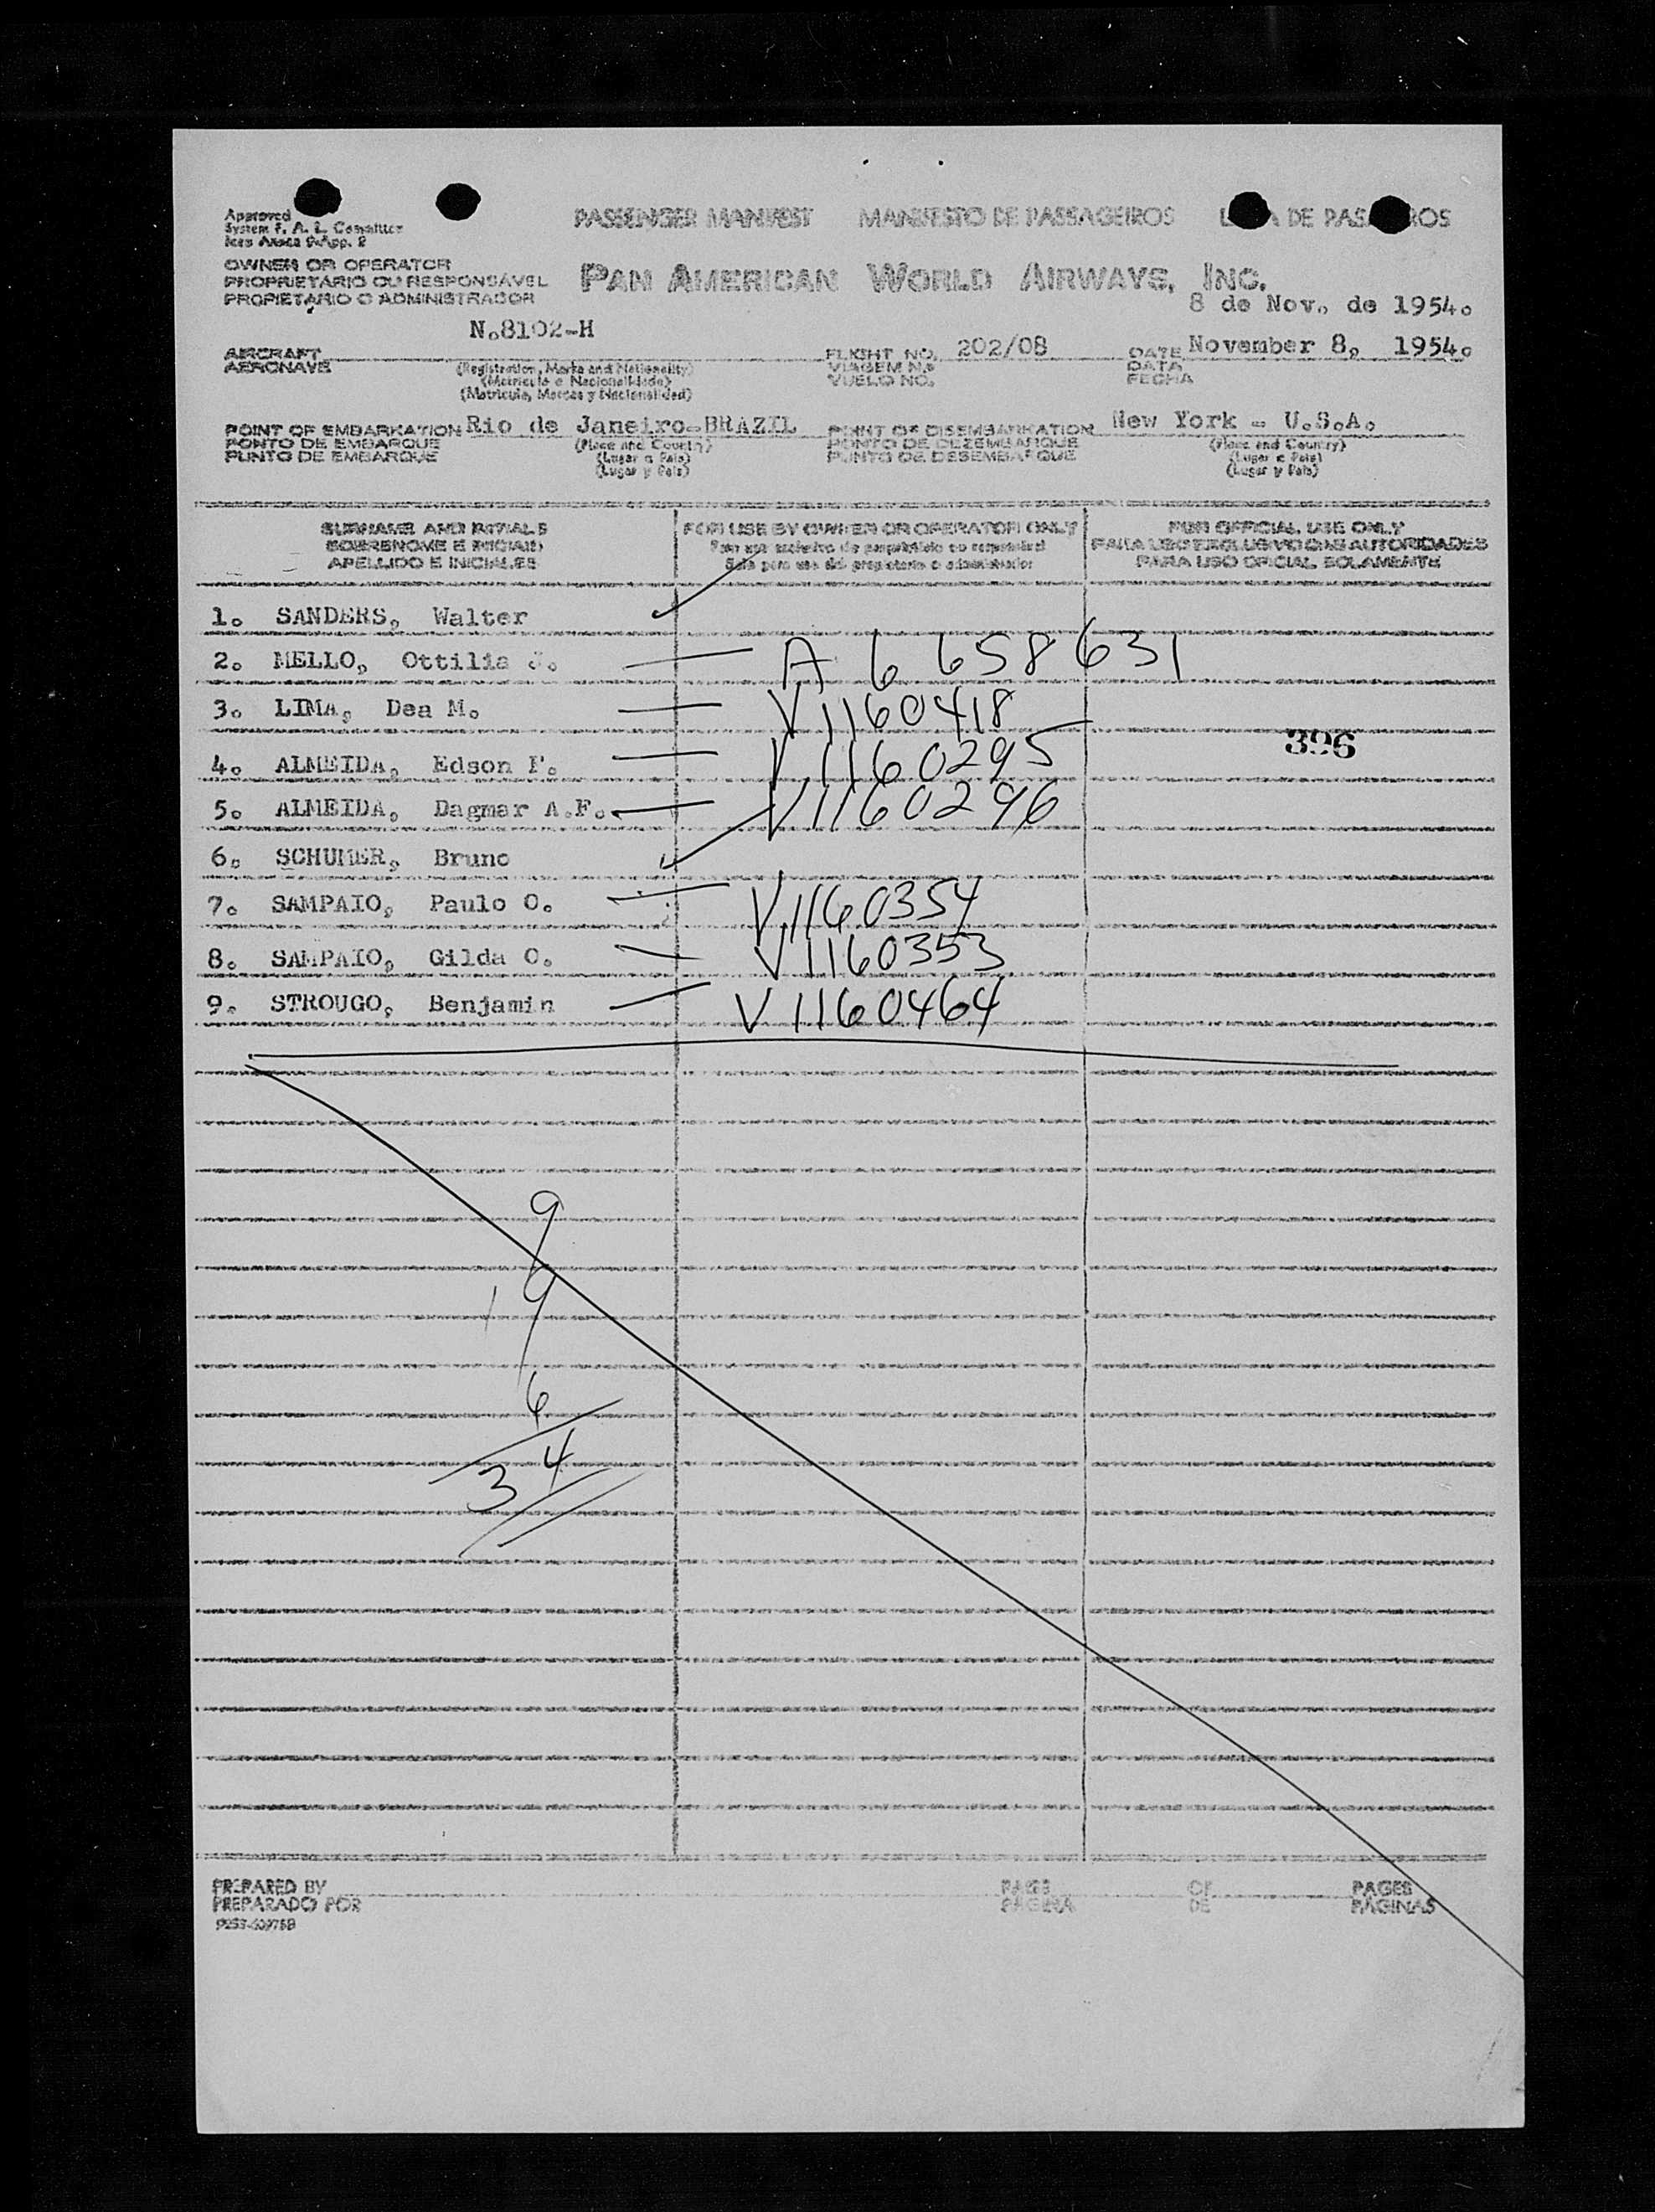 Approved
System F. A. L. Committee
Icao Annex 9-App. 2
PASSENGER MANIFEST MANIFESTO DE PASSAGEIROS DE PAS ROS
OWNER OR OPERATOR
PROPRIETARIO OU RESPONSÁVEL
PROPIETARIO O ADMINISTRADOR
PAN AMERICAN WORLD AIRWAYS, INC.
8 de Nov. de 1954.
N.8102-H
AIRCRAFT
AERONAVE
(Registration, Marks and Nationality)
(Matricula e Nacionalidade)
(Matricula, Marcas y Nacionalidad)
FLIGHT NO. 202/08
VIAGEM N.o
VUELO NO.
DATE November 8, 1954.
DATA
FECHA
POINT OF EMBARKATION Rio de Janeiro-BRAZIL
PONTO DE EMBARQUE
PUNTO DE EMBARQUE
(Place and Country)
(Lugar e Pais)
(Lugar y Pais)
POINT OF DISEMBARKATION New York - U.S.A.
PONTO DE DEZEMBARQUE
PUNTO DE DESEMBARQUE
(Place and Country)
(Lugar e Pais)
(Lugar y Pais)
SURNAME AND INITIALS
SOBRENOME E INICIAIS
APELLIDO E INICIALES
FOR USE BY OWNER OR OPERATOR ONLY
Para uso exclusivo do proprietário ou responsável
Solo para uso del propietario o administrador
FOR OFFICIAL USE ONLY
PARA USO EXCLUSIVO DAS AUTORIDADES
PARA USO OFICIAL SOLAMENTE
1. SANDERS, Walter
2. MELLO, Ottilia J. A 6 658 631
3. LIMA, Dea M. V1160418
396
4. ALMEIDA, Edson F. V1160295
5. ALMEIDA, Dagmar A.F. V1160296
6. SCHUMER, Bruno
7. SAMPAIO, Paulo O. V1160354
8. SAMPAIO, Gilda O. V1160353
9. STROUGO, Benjamin V1160464
9
19
6
34
PREPARED BY
PREPARADO POR
PAGE
PÁGINA
OF
DE
PAGES
PÁGINAS